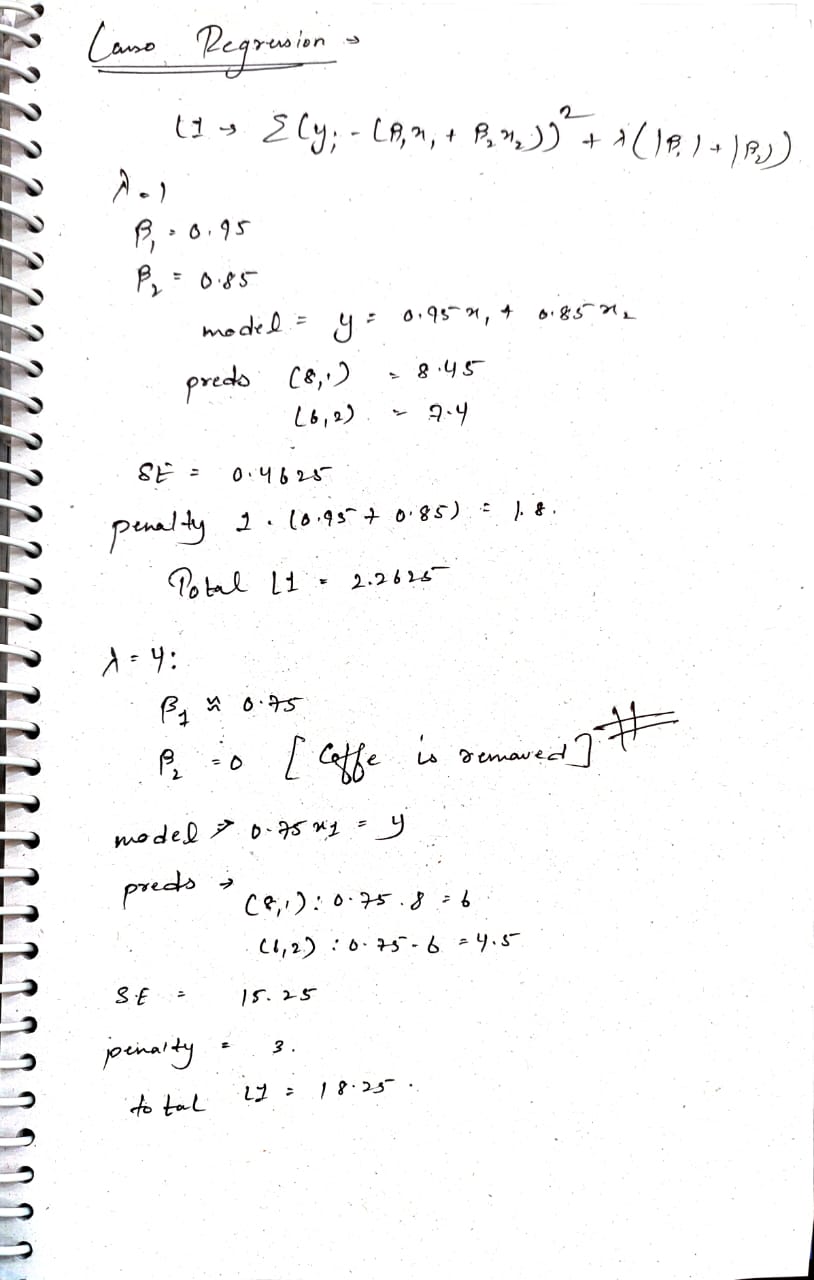 Lasso Regression →
L1 → Σ(yᵢ - (β₁x₁ + β₂x₂))² + λ(|β₁| + |β₂|)
λ = 1
β₁ = 0.95
β₂ = 0.85
model = y = 0.95x₁ + 0.85x₂
preds (8,1) = 8.45
(6,2) = 7.4
SE = 0.4625
penalty 1 . (0.95 + 0.85) = 1.8.
Total L1 = 2.2625
λ = 4:
β₁ ≈ 0.75
β₂ = 0 [Coffe is removed] #
model → 0.75x₁ = y
preds →
(8,1) : 0.75 . 8 = 6
(6,2) : 0.75 . 6 = 4.5
SE = 15.25
penalty = 3.
total L1 = 18.25.